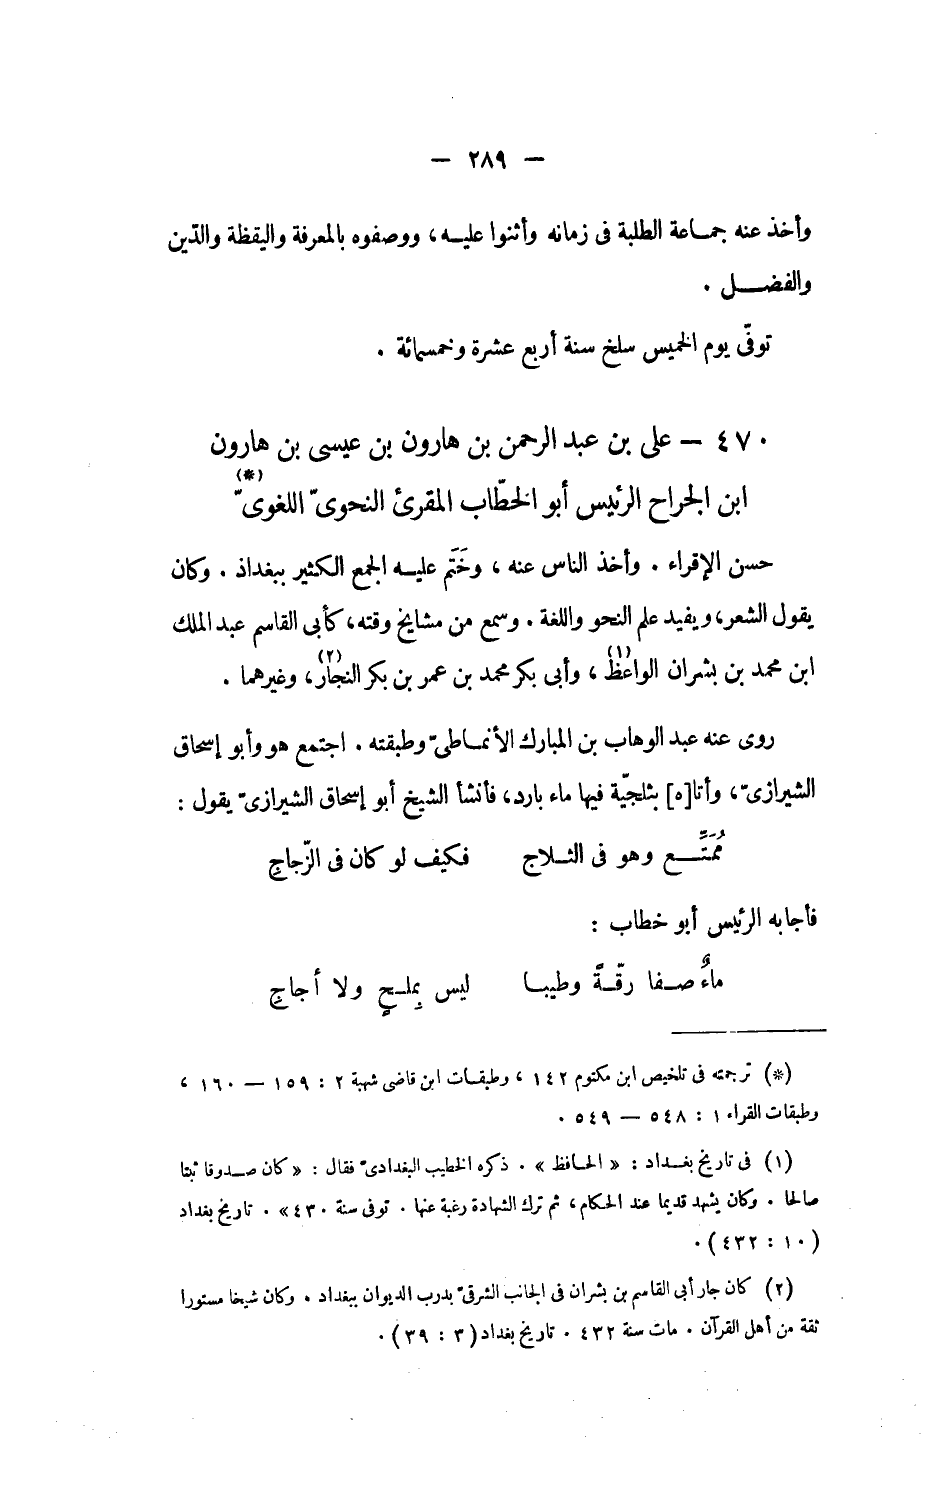 — ٢٨٩ —
وأخذ عنه جماعة الطلبة فى زمانه وأثنوا عليه، ووصفوه بالمعرفة واليقظة والدّين
والفضل .
توفّى يوم الخميس سلخ سنة أربع عشرة وخمسمائة .
٤٧٠ — على بن عبد الرحمن بن هارون بن عيسى بن هارون
ابن الجراح الرئيس أبو الخطّاب المقرئ النحوىّ اللغوىّ (*)
حسن الإقراء . وأخذ الناس عنه ، وخَتَم عليه الجمع الكثير ببغداذ . وكان
يقول الشعر، ويفيد علم النحو واللغة . وسمع من مشايخ وقته، كأبى القاسم عبد الملك
ابن محمد بن بشران الواعظ (١) ، وأبى بكر محمد بن عمر بن بكر النجّار (٢)، وغيرهما .
روى عنه عبد الوهاب بن المبارك الأنماطىّ وطبقته . اجتمع هو وأبو إسحاق
الشيرازىّ، وأتا[ه] بثلجيّة فيها ماء بارد، فأنشأ الشيخ أبو إسحاق الشيرازىّ يقول :
مُمَنَّع وهو فى الثلاج فكيف لو كان فى الزّجاجِ
فأجابه الرئيس أبو خطاب :
ماءٌ صفا رقّةً وطيبا ليس بِملحٍ ولا أجاجِ
(*) ترجمته فى تلخيص ابن مكتوم ١٤٢ ، وطبقات ابن قاضى شهبة ٢ : ١٥٩ — ١٦٠ ،
وطبقات القراء ١ : ٥٤٨ — ٥٤٩ .
(١) فى تاريخ بغداد : « الحافظ » . ذكره الخطيب البغدادىّ فقال : « كان صدوقا ثبتا
صالحا . وكان يشهد قديما عند الحكام ، ثم ترك الشهادة رغبة عنها . توفى سنة ٤٣٠» . تاريخ بغداد
(١٠ : ٤٣٢) .
(٢) كان جار أبى القاسم بن بشران فى الجانب الشرقىّ بدرب الديوان ببغداد . وكان شيخا مستورا
ثقة من أهل القرآن . مات سنة ٤٣٢ . تاريخ بغداد (٣ : ٣٩) .